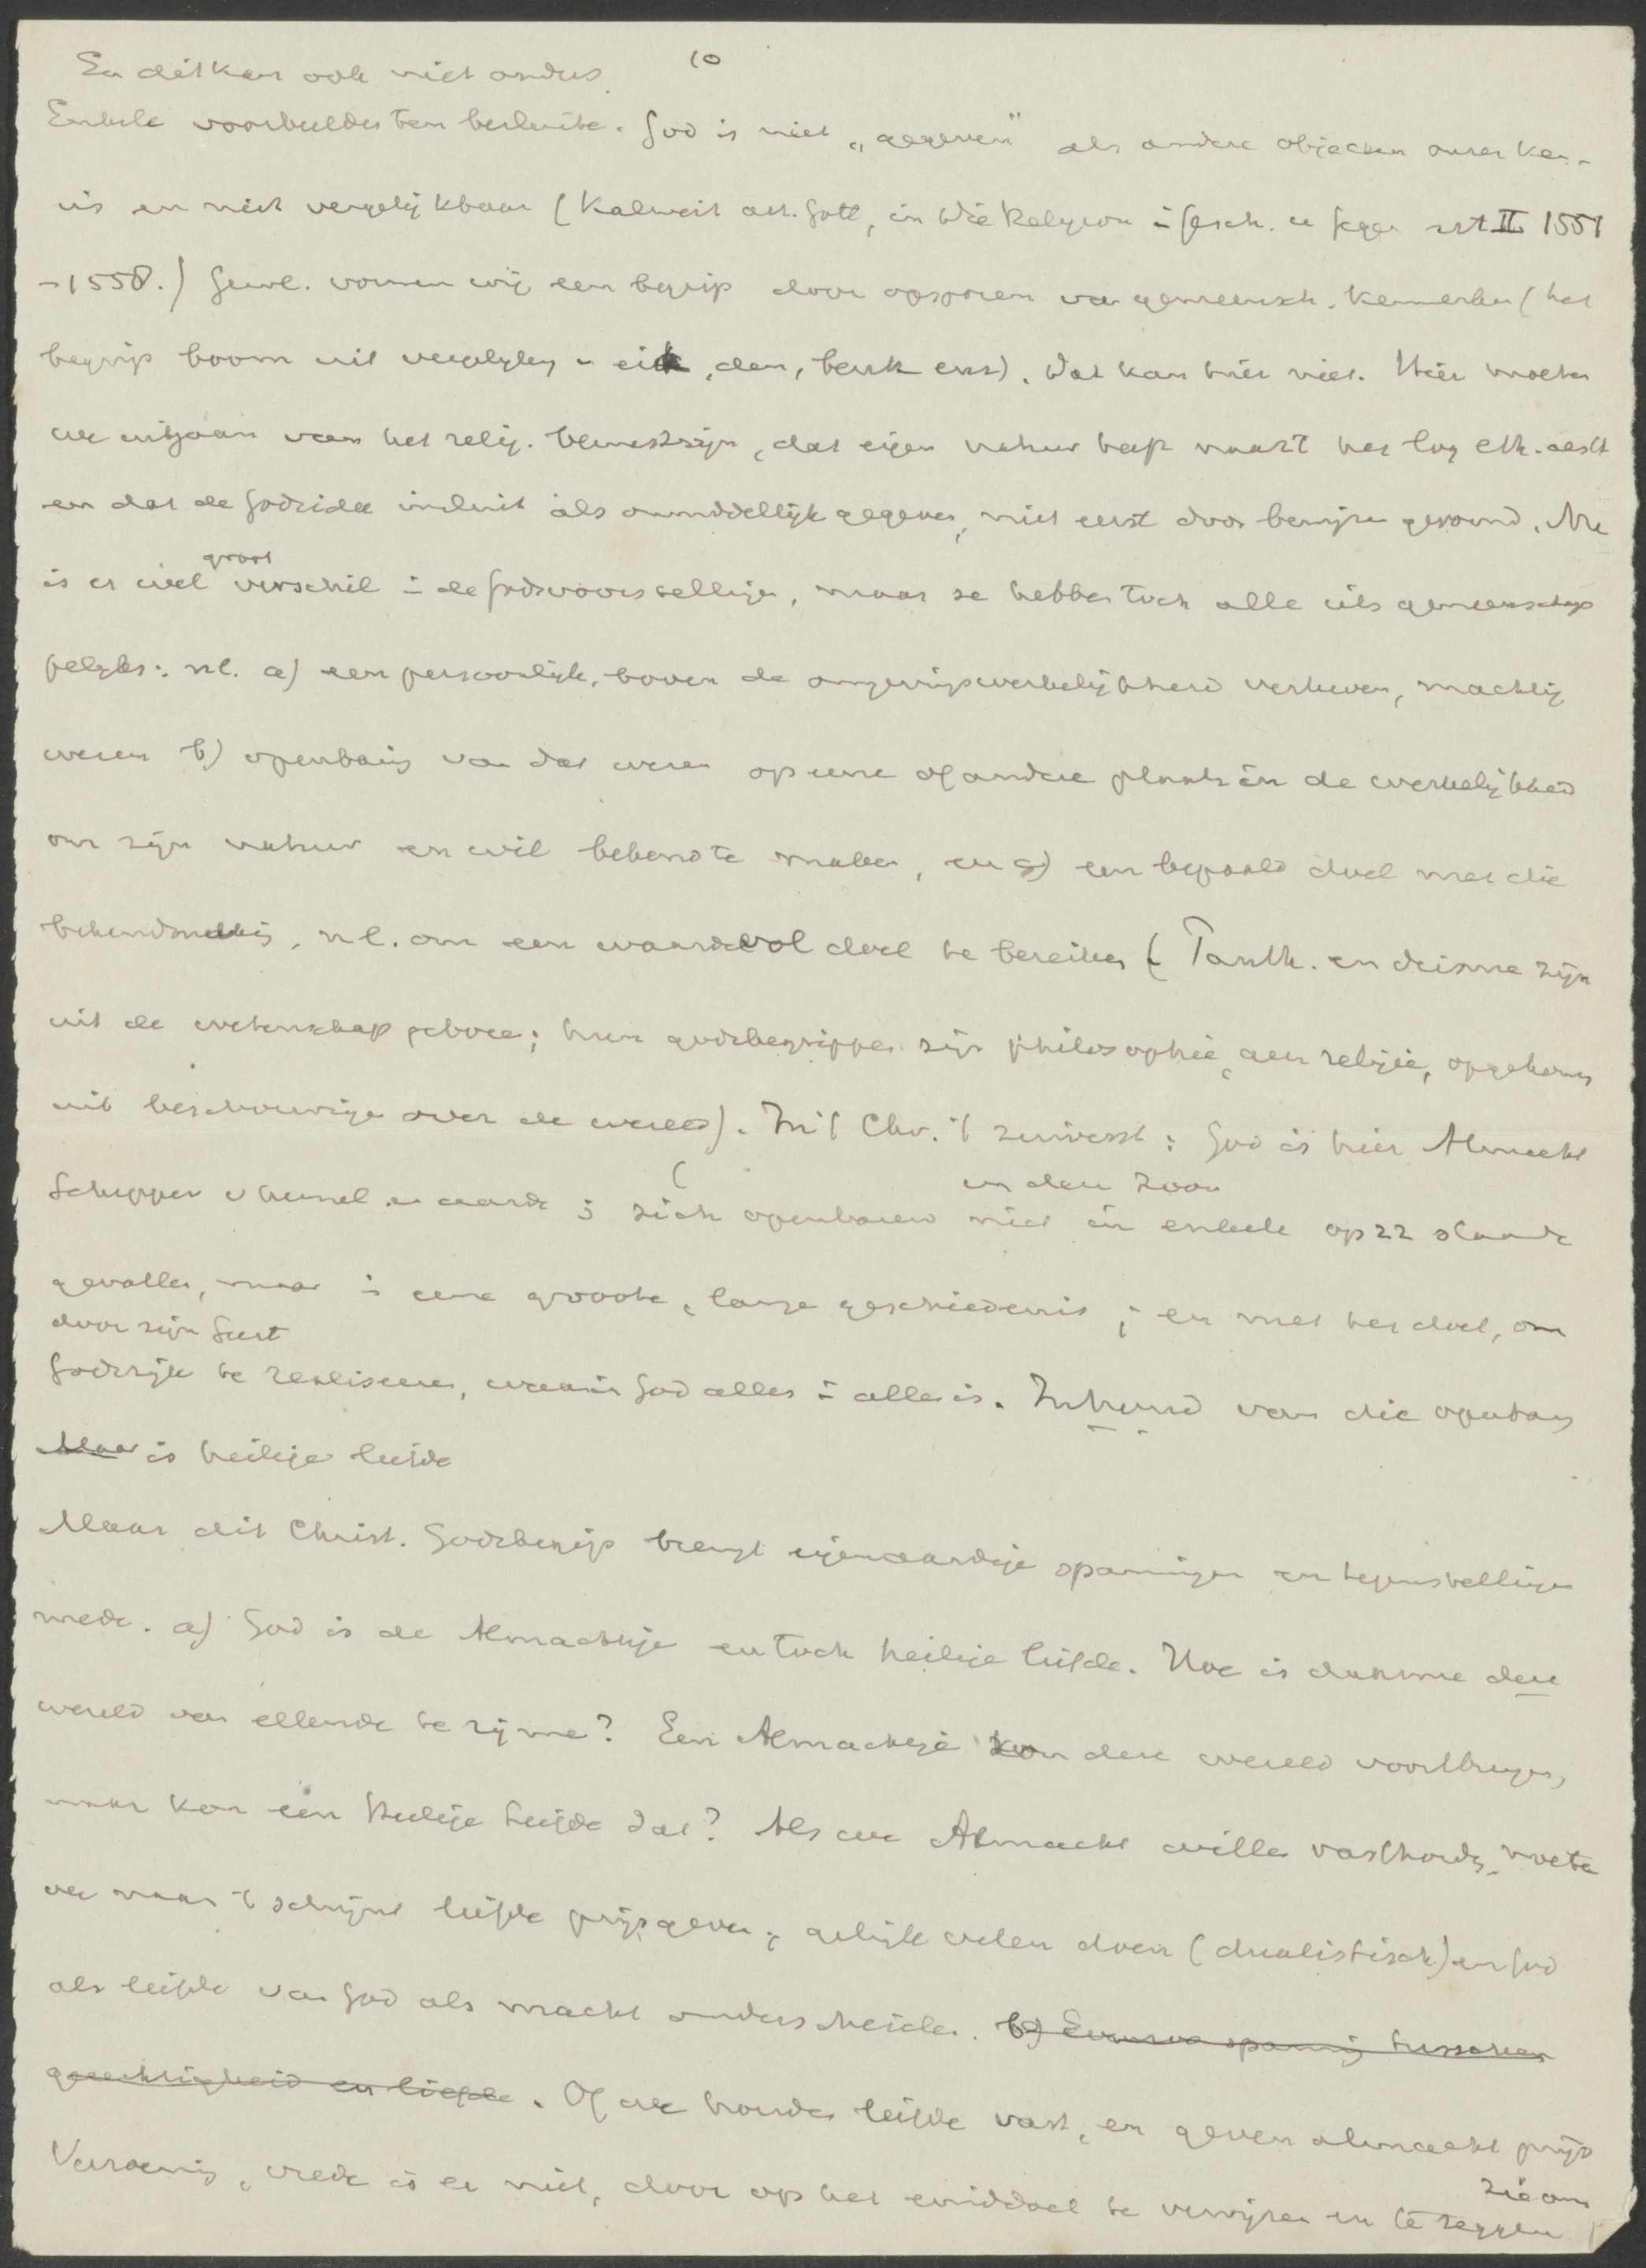 10
En dit kan ook niet anders.
Enkele voorbeelden ten besluite. God is niet „gegeven" als andere objecten onzer ken-
nis en niet vergelijkbaar (Kalweit art. Gott, in Die Religion i Gesch. u Gegen wt II 1551
-1558.) Gewl. vormen wij een begrip door opsporen van gemeensch. kenmerken (het
begrip boom uit vergelijkg v eik, den, berk enz). Dat kan hier niet. Hier moeten
we uitgaan van het relig. bewustzijn, dat eigen natuur heeft naast het log eth. aesth
en dat de Godsidee insluit als onmiddellijk gegeven, niet eerst door bewijzen gevormd. Nu
is er wel groot verschil i de Godsvoorstellingen, maar ze hebben toch alle iets gemeenschap
pelijks: nl. a) een persoonlijk, boven de omgevingswerkelijkheid verheven, machtig
wezen b) openbaring van dat wezen op eene of andere plaats in de werkelijkheid
om zijn natuur en wil bekend te maken, en c) een bepaald doel met die
bekendmaking, nl. om een waardevol doel te bereiken (Panth. en deisme zijn
uit de wetenschap geboren; hun godsbegrippen zijn philosophie, geen religie, opgekomen
uit beschouwingen over de wereld). In 't Chr. 't zuiverst: God is hier Almacht
Schepper v hemel en aarde; zich openbarend in den Zoon niet in enkele op zz staande
gevallen, maar i eene groote, lange geschiedenis; en met het doel, om
door zijn Geest
Godsrijk te realiseeren, waarin God alles i allen is. Inhoud van die openbarg
Maar is heilige liefde
Maar dit Christ. Godsbegrip brengt eigenaardige spanningen en tegenstellingen
mede. a) God is de Almachtige en toch heilige liefde. Hoe is daarmee deze
wereld van ellende te rijmen? Een Almachtige kon deze wereld voortbrengen,
maar kon een Heilige liefde dat? Als we Almacht willen vasthouden, moeten
we naar 't schijnt liefde prijsgeven; gelijk velen doen (dualistisch) en God
als liefde van God als macht onderscheiden. b) Evenzoo spanning tusschen
gerechtigheid en liefde. Of we houden liefde vast, en geven almacht prijs
Verzoening, vrede is er niet, door op het einddoel te verwijzen en te zeggen
zie om